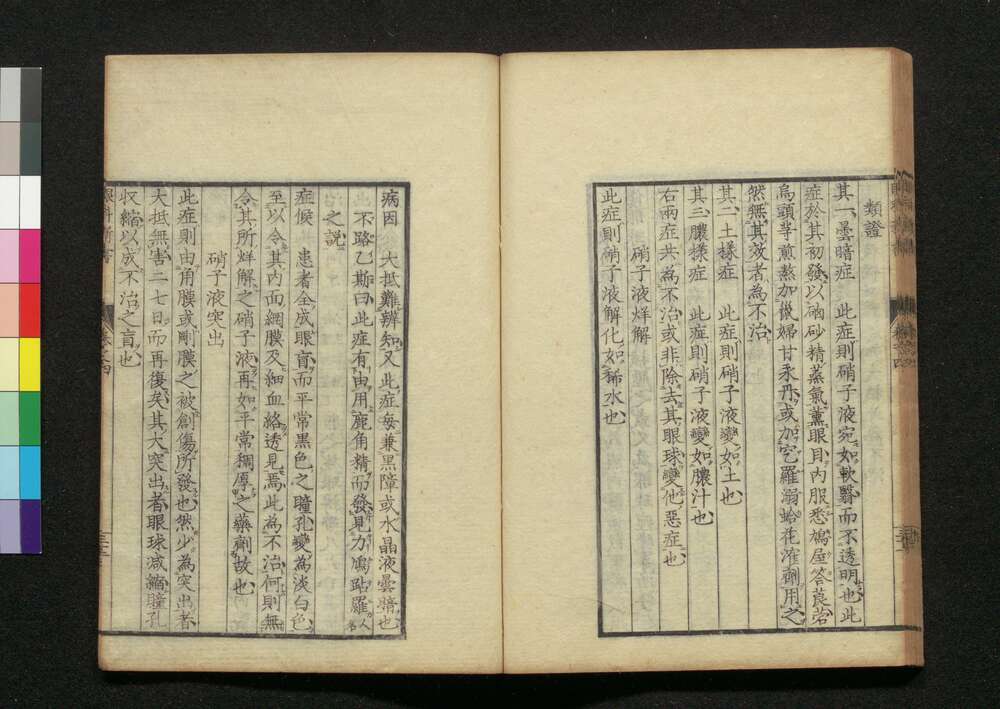 類證
其一、曇暗症 此症則硝子液宛如軟翳而不透明也此
症於其初發以硇砂精蒸氣薰眼目內服悉鳩屋答莨菪
烏頭羊煎熬加傲婦甘汞丹或加空羅溺蛤花滝劑用之
然無其效者為不治
其二、土樣症 此症則硝子液變如土也
其三、膿樣症 此症則硝子液變如膿汁也
右兩症共為不治或非除去其眼球變他惡症也
硝子液烊解
此症則硝子液解化如稀水也
病因 大抵難辨知又此症每兼黑障或水晶液曇暗也
不路乙斯曰此症有由用鹿角精而發見力鳩跕羅人名
之說
症候 患者全成眼盲而平常黑色之瞳孔變為淡白色
至以令其內面網膜及細血絡透見焉此為不治何則無
令其所烊解之硝子液再如平常稠厚之藥劑故也
硝子液突出
此症則由角膜或剛膜之被創傷所發也然少為突出者
大抵無害二七日而再復矣其大突出者眼球減縮瞳孔
収縮以成不治之盲也
眼科新書 卷之四